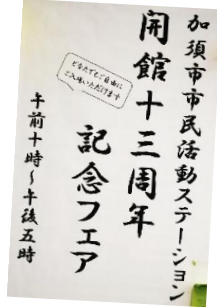 加須市市民活動ステーション
開館十三周年
記念フェア
どなたでもご自由に
ご入場いただけます
午前十時～午後五時